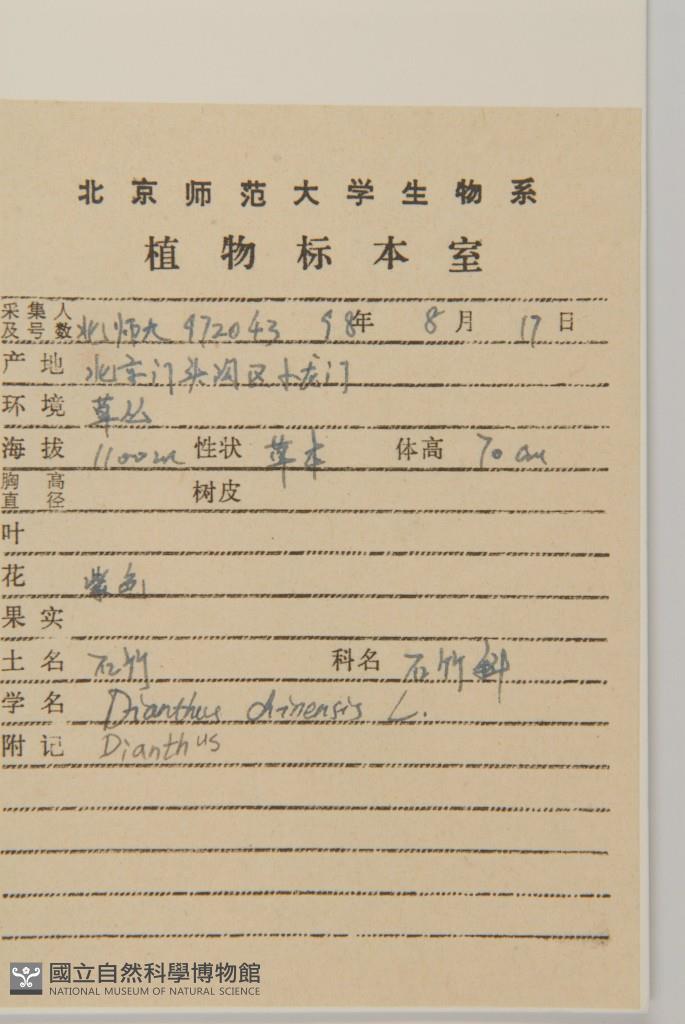 北京师范大学生物系
植物标本室
采集人及号数 北师大 972043 98年 8月 17日
产地 北京门头沟区小龙门
环境 草丛
海拔 1100m 性状 草本 体高 70cm
胸高直径 树皮
叶
花 紫色
果实
土名 石竹 科名 石竹科
学名 Dianthus chinensis L.
附记 Dianthus
國立自然科學博物館
NATIONAL MUSEUM OF NATURAL SCIENCE